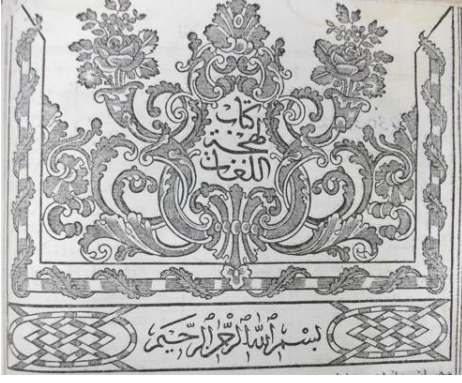 كتاب
لهجة
اللغات
بسم الله الرحمن الرحيم